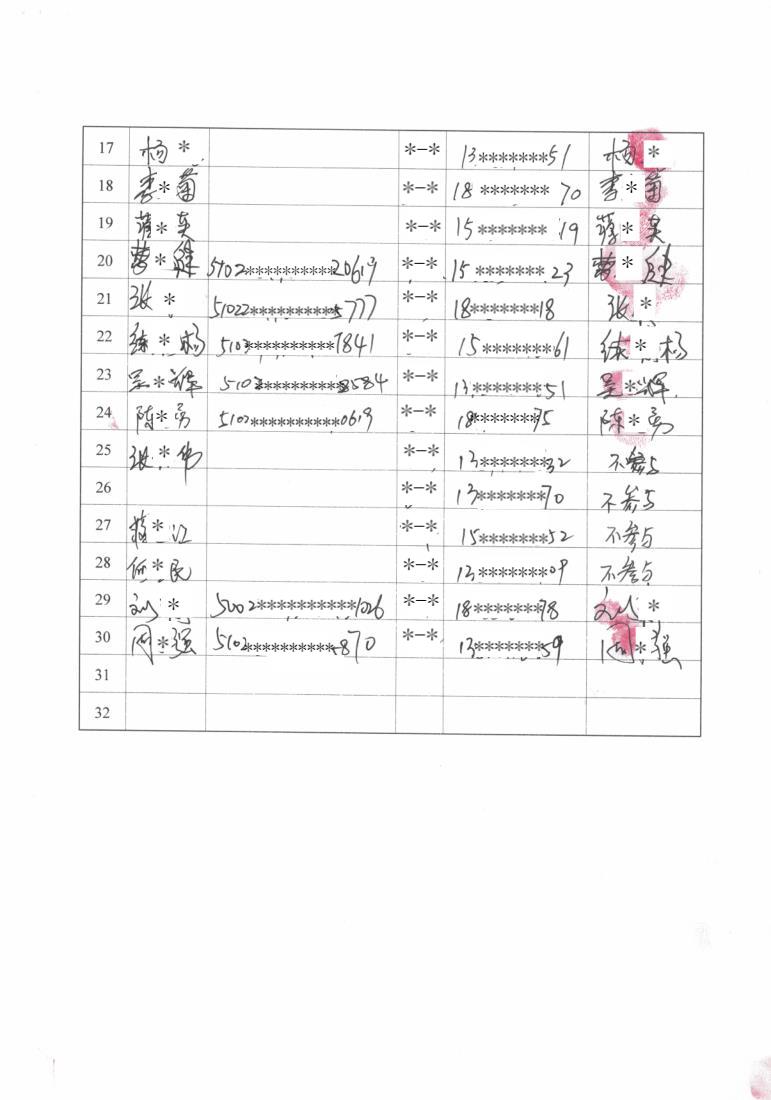 17 杨* *-* 13*******51 杨*
18 李*菊 *-* 18******* 70 李*菊
19 蒋*英 *-* 15******* 19 蒋*英
20 * 5102**********20619 *-* 15******* 23 *
21 张* 51022*********5777 *-* 18*******18 张*
22 练*杨 510**********1841 *-* 15*******61 练*杨
23 吴*辉 510**********584 *-* 13*******51 吴*辉
24 陈*勇 5102**********0619 *-* 18*******95 陈*勇
25 张*伟 *-* 13*******32 不参与
26 *-* 13*******70 不参与
27 *江 *-* 15*******52 不参与
28 何*民 *-* 13*******09 不参与
29 刘* 5002**********1026 *-* 18*******78 刘*
30 周*强 5102**********870 *-* 13*******59 周*强
31
32